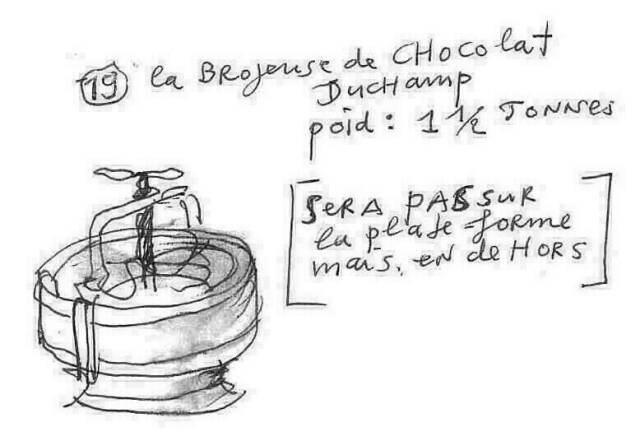 19 la BRojeuse de CHocolat
DucHamp
poid: 1 ½ TONNES
SERA PAS SUR
la plate-forme
mais. EN deHORS